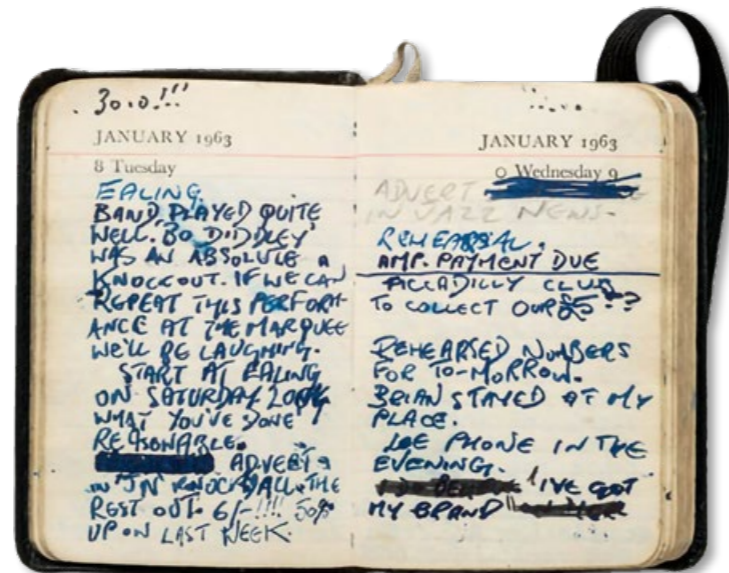 30.0!!!
JANUARY 1963
8 Tuesday
EALING
BAND PLAYED QUITE
WELL. 'BO DIDDLEY'
WAS AN ABSOLUTE A
KNOCKOUT. IF WE CAN
REPEAT THIS PERFORM-
ANCE AT THE MARQUEE
WE'LL BE LAUGHING.
START AT EALING
ON SATURDAY
WHAT YOU'VE DONE
REASONABLE.
ADVERT
IN 'JN' KNOCKS ALL THE
REST OUT. 6/-!!!! 50%
UP ON LAST WEEK.
JANUARY 1963
Wednesday 9
ADVERT
IN JAZZ NEWS-
REHEARSAL.
AMP. PAYMENT DUE
PICCADILLY CLUB
TO COLLECT OUR ??
REHEARSED NUMBERS
FOR TO-MORROW.
BRIAN STAYED AT MY
PLACE.
LEE PHONE IN THE
EVENING.
I'VE GOT
MY BRAND